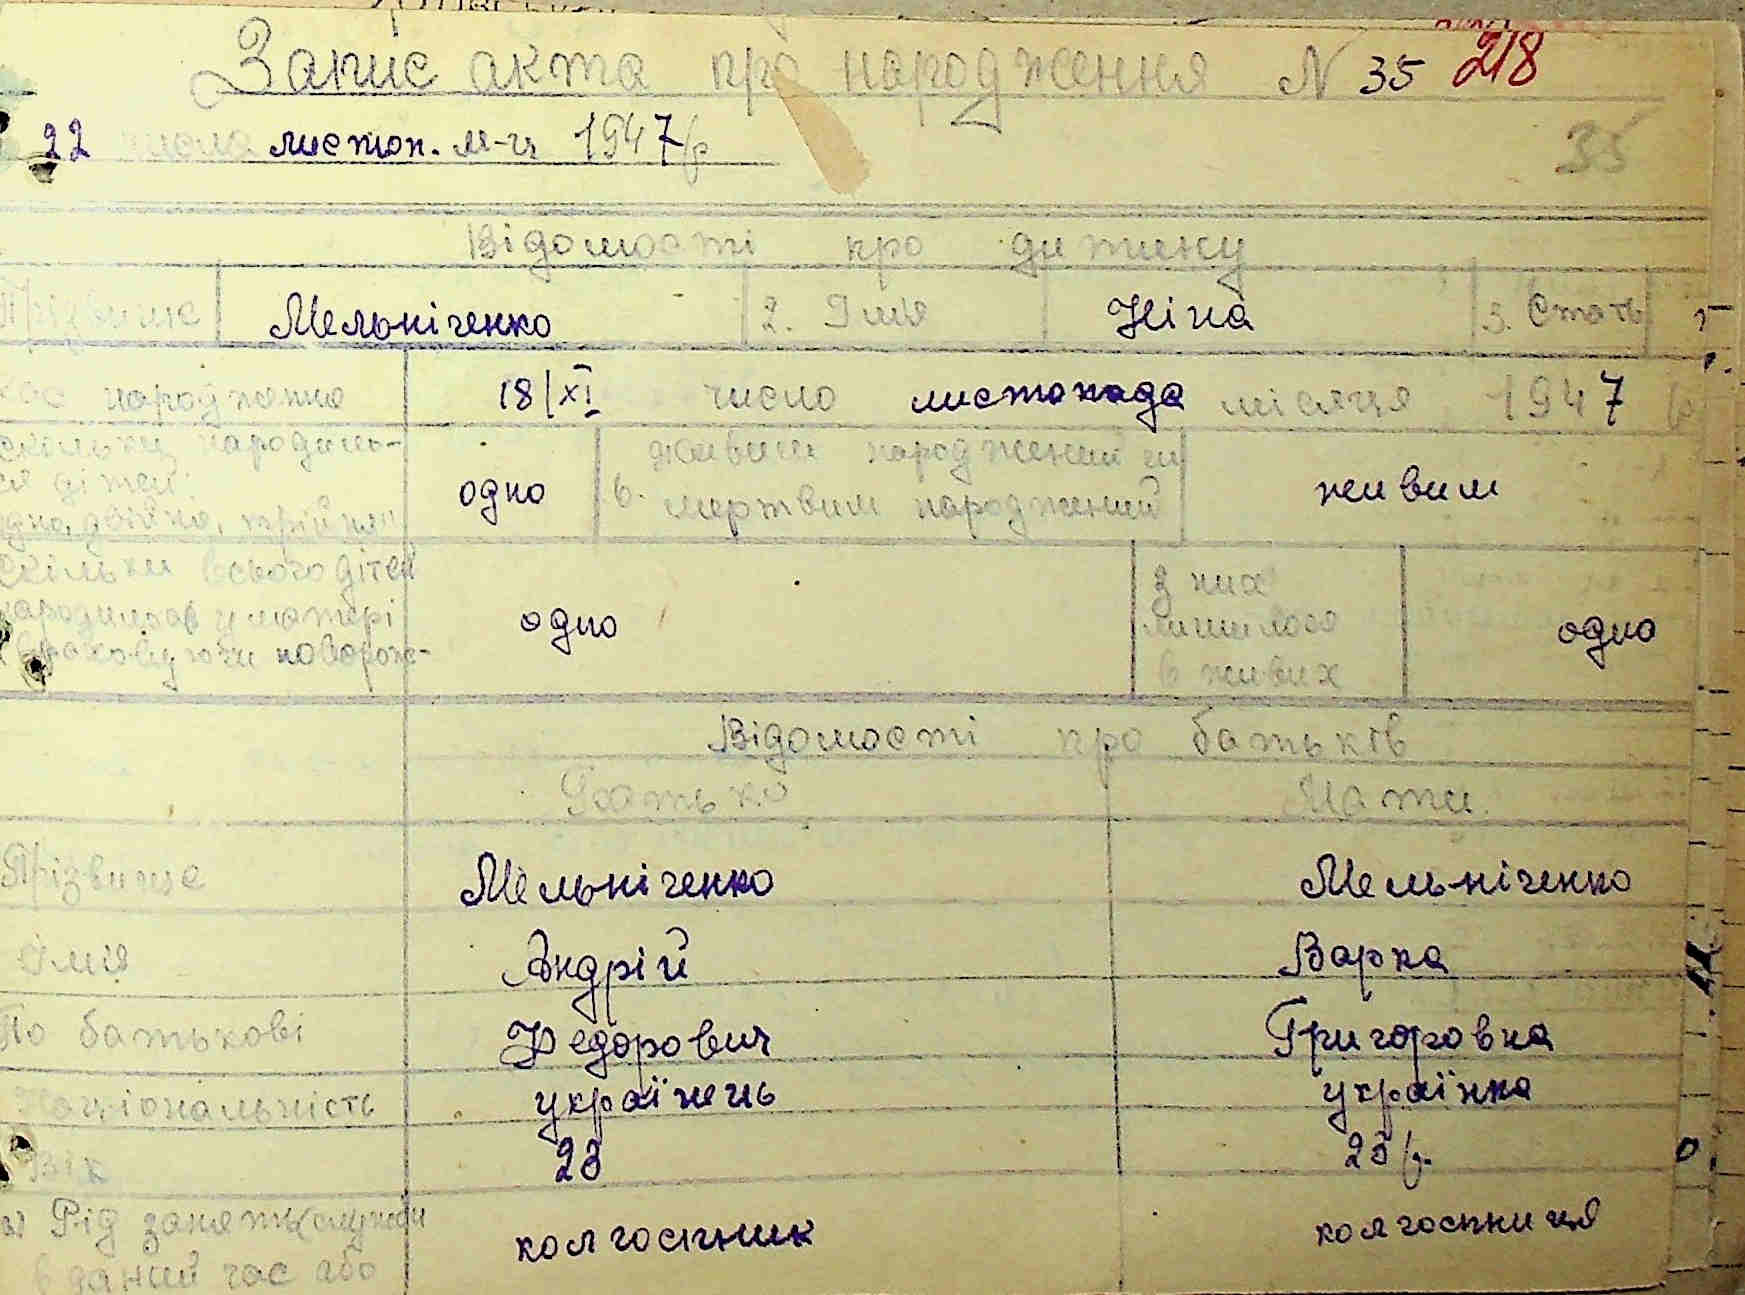 Запис акта про народження N 35 218
22 числа листоп. м-ця 1947 р
35
Відомості про дитину
Прізвище Мельніченко 2. Імя Ніна 3. Стать
час народження 18/XI число листопада місяця 1947 р
скільки народило-
ся дітей: одно 6. живим народжений чи мертвим народжений живим
одна, двійня, трійня
скільки всього дітей
народилось у матері одно з них лишилось в живих одно
враховуючи новорож-
Відомості про батьків
Батько Мати
Прізвище Мельніченко Мельніченко
Імя Андрій Варка
По батькові Федорович Григоровна
Національність українець українка
Вік 23 23 р.
а) Рід занять (служби колгоспник колгоспниця
в даний час або